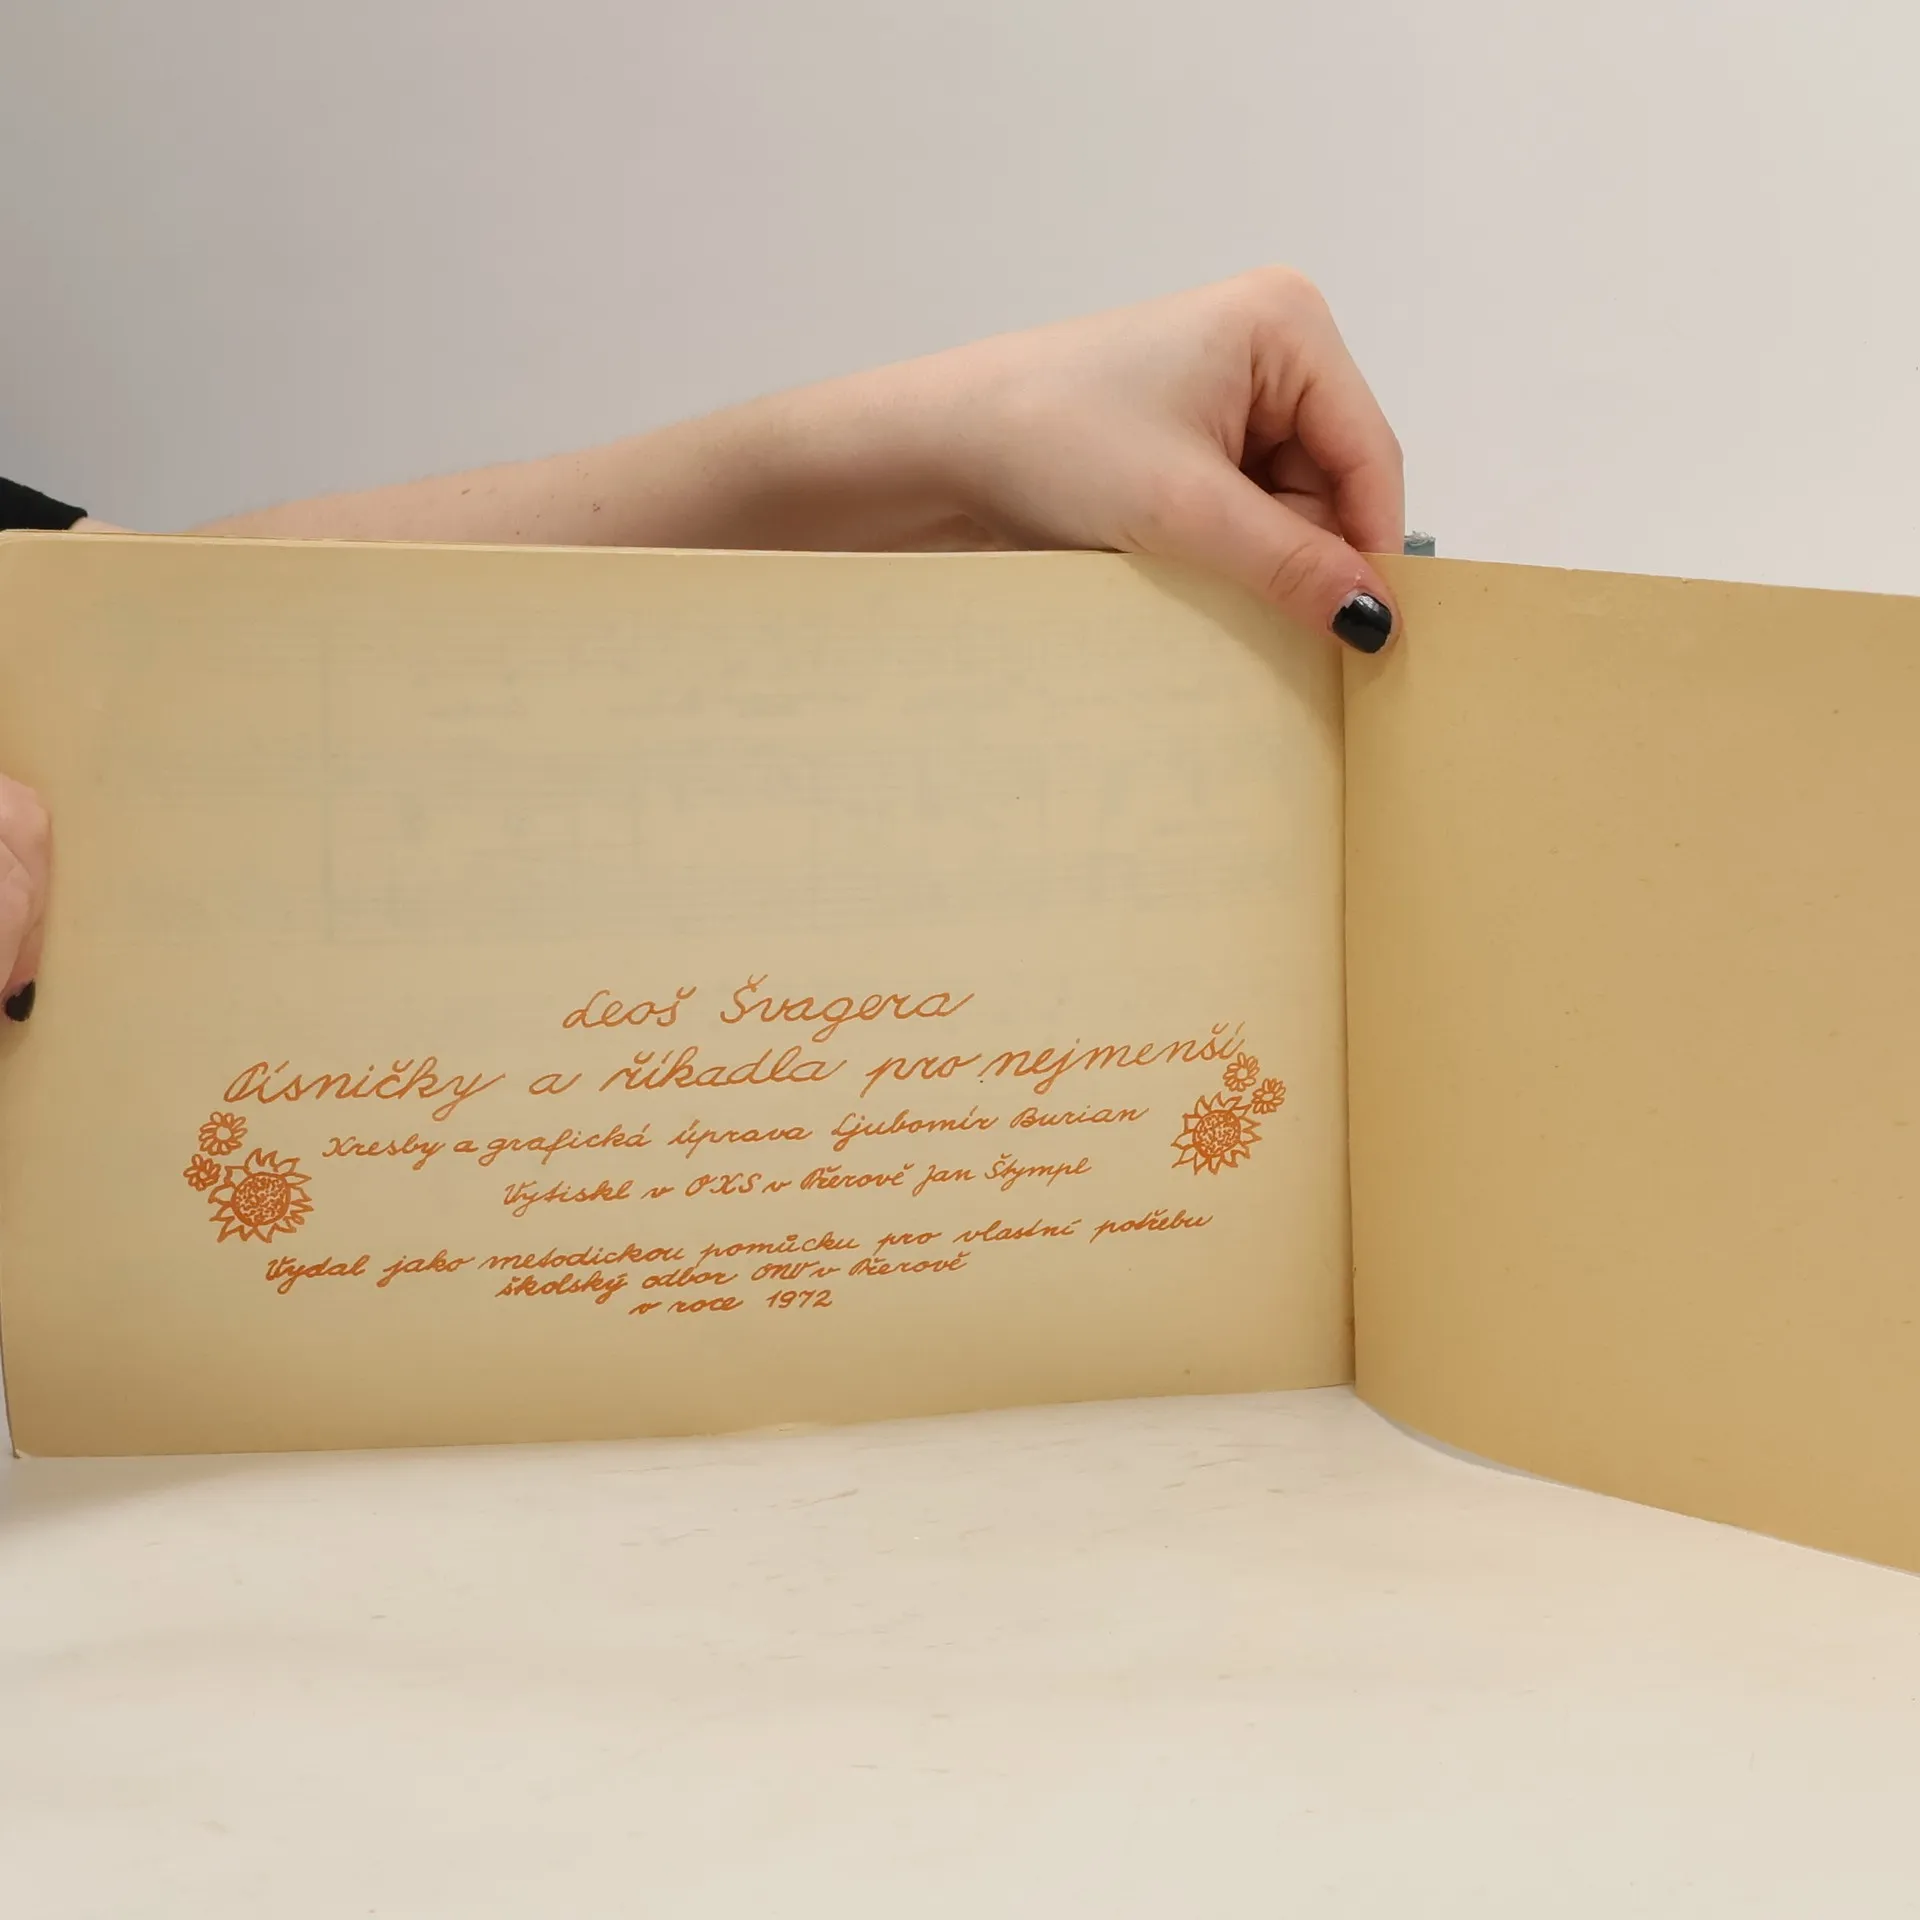 Leoš Švagera
Písničky a říkadla pro nejmenší
Kresby a grafická úprava Ljubomír Burian
Vytiskl v OKS v Přerově Jan Štympl
Vydal jako metodickou pomůcku pro vlastní potřebu
školský odbor ONV v Přerově
v roce 1972